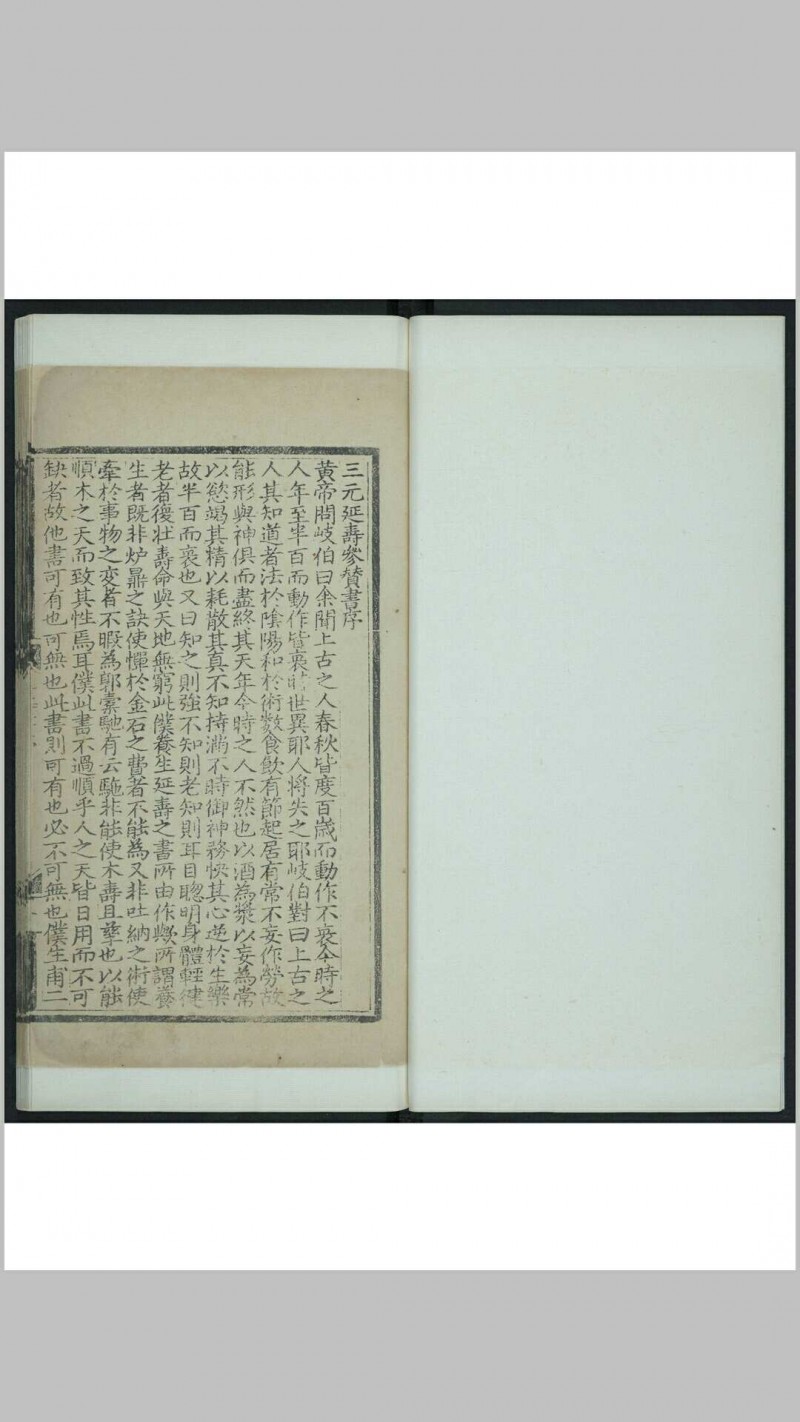 三元延壽參贊書序
黃帝問岐伯曰余聞上古之人春秋皆度百歲而動作不衰今時之
人年至半百而動作皆衰時世異耶人將失之耶岐伯對曰上古之
人其知道者法於陰陽和於術數食飲有節起居有常不妄作勞故
能形與神俱而盡終其天年今時之人不然也以酒為漿以妄為常
以慾竭其精以耗散其真不知持滿不時御神務快其心逆於生樂
故半百而衰也又曰知之則強不知則老知則耳目聰明身體輕健
老者復壯壽命與天地無窮此僕養生延壽之書所由作歟所謂養
生者既非炉鼎之訣使憚於金石之費者不能為又非吐納之術使
牽於事物之変者不暇為郭橐馳有云馳非能使木壽且孳也以能
順木之天而致其性焉耳僕此書不過順乎人之天皆日用而不可
缺者故他書可有也可無也此書則可有也必不可無也僕生甫二